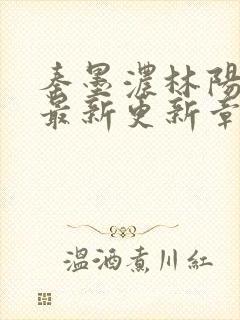 秦墨濃林陽
最新更新章
溫酒煮川紅